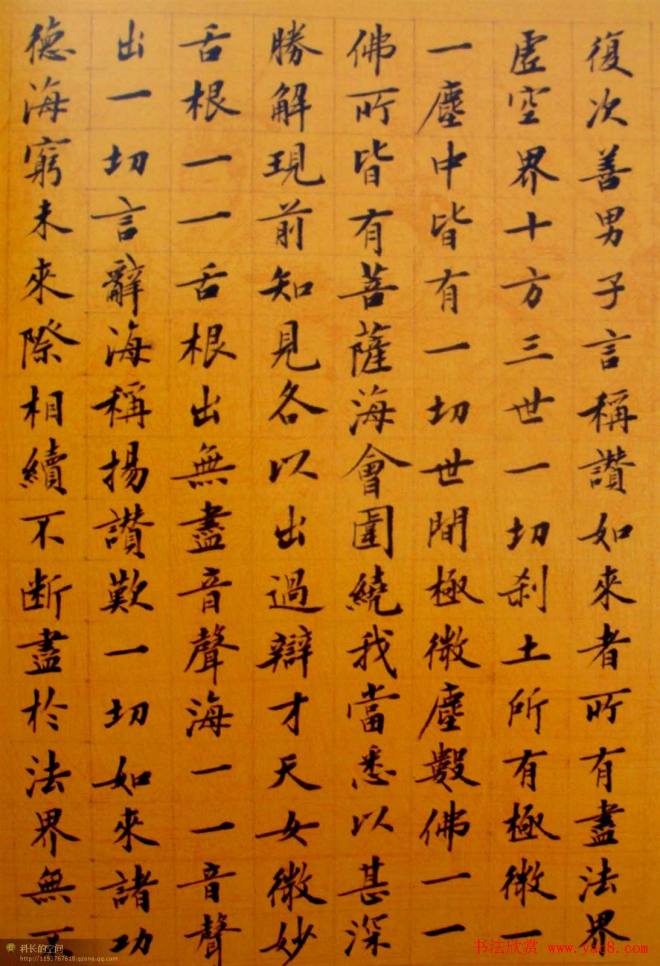 復次善男子言稱讚如來者所有盡法界
虛空界十方三世一切刹土所有極微一
一塵中皆有一切世間極微塵數佛一一
佛所皆有菩薩海會圍繞我當悉以甚深
勝解現前知見各以出過辯才天女微妙
舌根一一舌根出無盡音聲海一一音聲
出一切言辭海稱揚讚歎一切如來諸功
德海窮未來際相續不斷盡於法界無不
科长的空间
http://1151767618.qzone.qq.com
书法欣赏 www.yac8.com